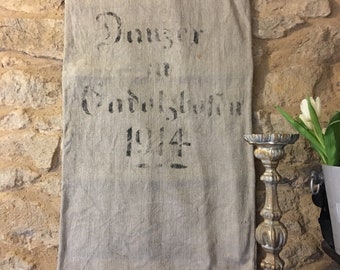 Danzer
in
Cadolzhofen
1914